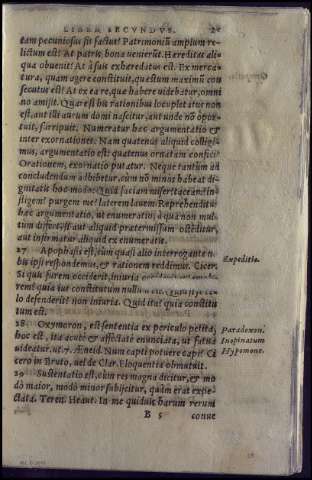 LIBER SECVNDVS.
tam pecuniosus sit factus? Patrimoniũ amplum re-
lictum est? At patris bona uenierũt. Hereditas ali-
qua obuenit? At à suis exheredatus est. Ex merca-
tura, quam agere constituit, quæstum maximũ con
secutus est? At ex ea re, quã habere uidebatur, omni
no amisit. Quare si his rationibus locupletator non
est, aut illi aurum domi nascitur, aut unde nõ opor-
tuit, surripuit. Numeratur hæc argumentatio &
inter exornationes. Nam quatenus aliquid colligi-
mus, argumentatio est: quatenus ornatum conficit
Orationem, exornatio putatur. Neque tantùm ad
concludendum adhibetur, cùm nõ minus habeat di-
gnitatis hoc modo: Quid faciam miser? taceam? in-
stigem? purgem me? laterem lauem. Reprehenditur
hac argumentatio, ut enumeratio, à qua non mul-
tum differt, si aut aliquid prætermissum ostẽditur,
aut infirmatur aliquid ex enumeratis.
27 Apophasis est, cùm quasi alio interrogante no
bis ipsi respondemus, & rationem reddimus. Cicer.
Expeditio.
Si quis furem occiderit, iniuria
rem? quia ius constitutum nullum est. Quid si se te-
lo defenderit? non iniuria. Quid ita? quia constitu
tum est.
28 Oxymoron, est sententia ex periculo petita,
hoc est, ita acutè & affectatè enunciata, ut fatua
uideatur. ut. 7. Æneid. Num capti potuere capi? Ci
cero in Bruto, uel de Clar. Eloquentia obmutuit.
Paradoxon.
Inopinatum
Hypomone.
29 Sustentatio est, cùm res magna dicitur, & mo
dò maior, modò minor subijcitur, quàm erat expe-
ctata. Teren. Heaut. In me quiduis harum rerum
B 5 conue